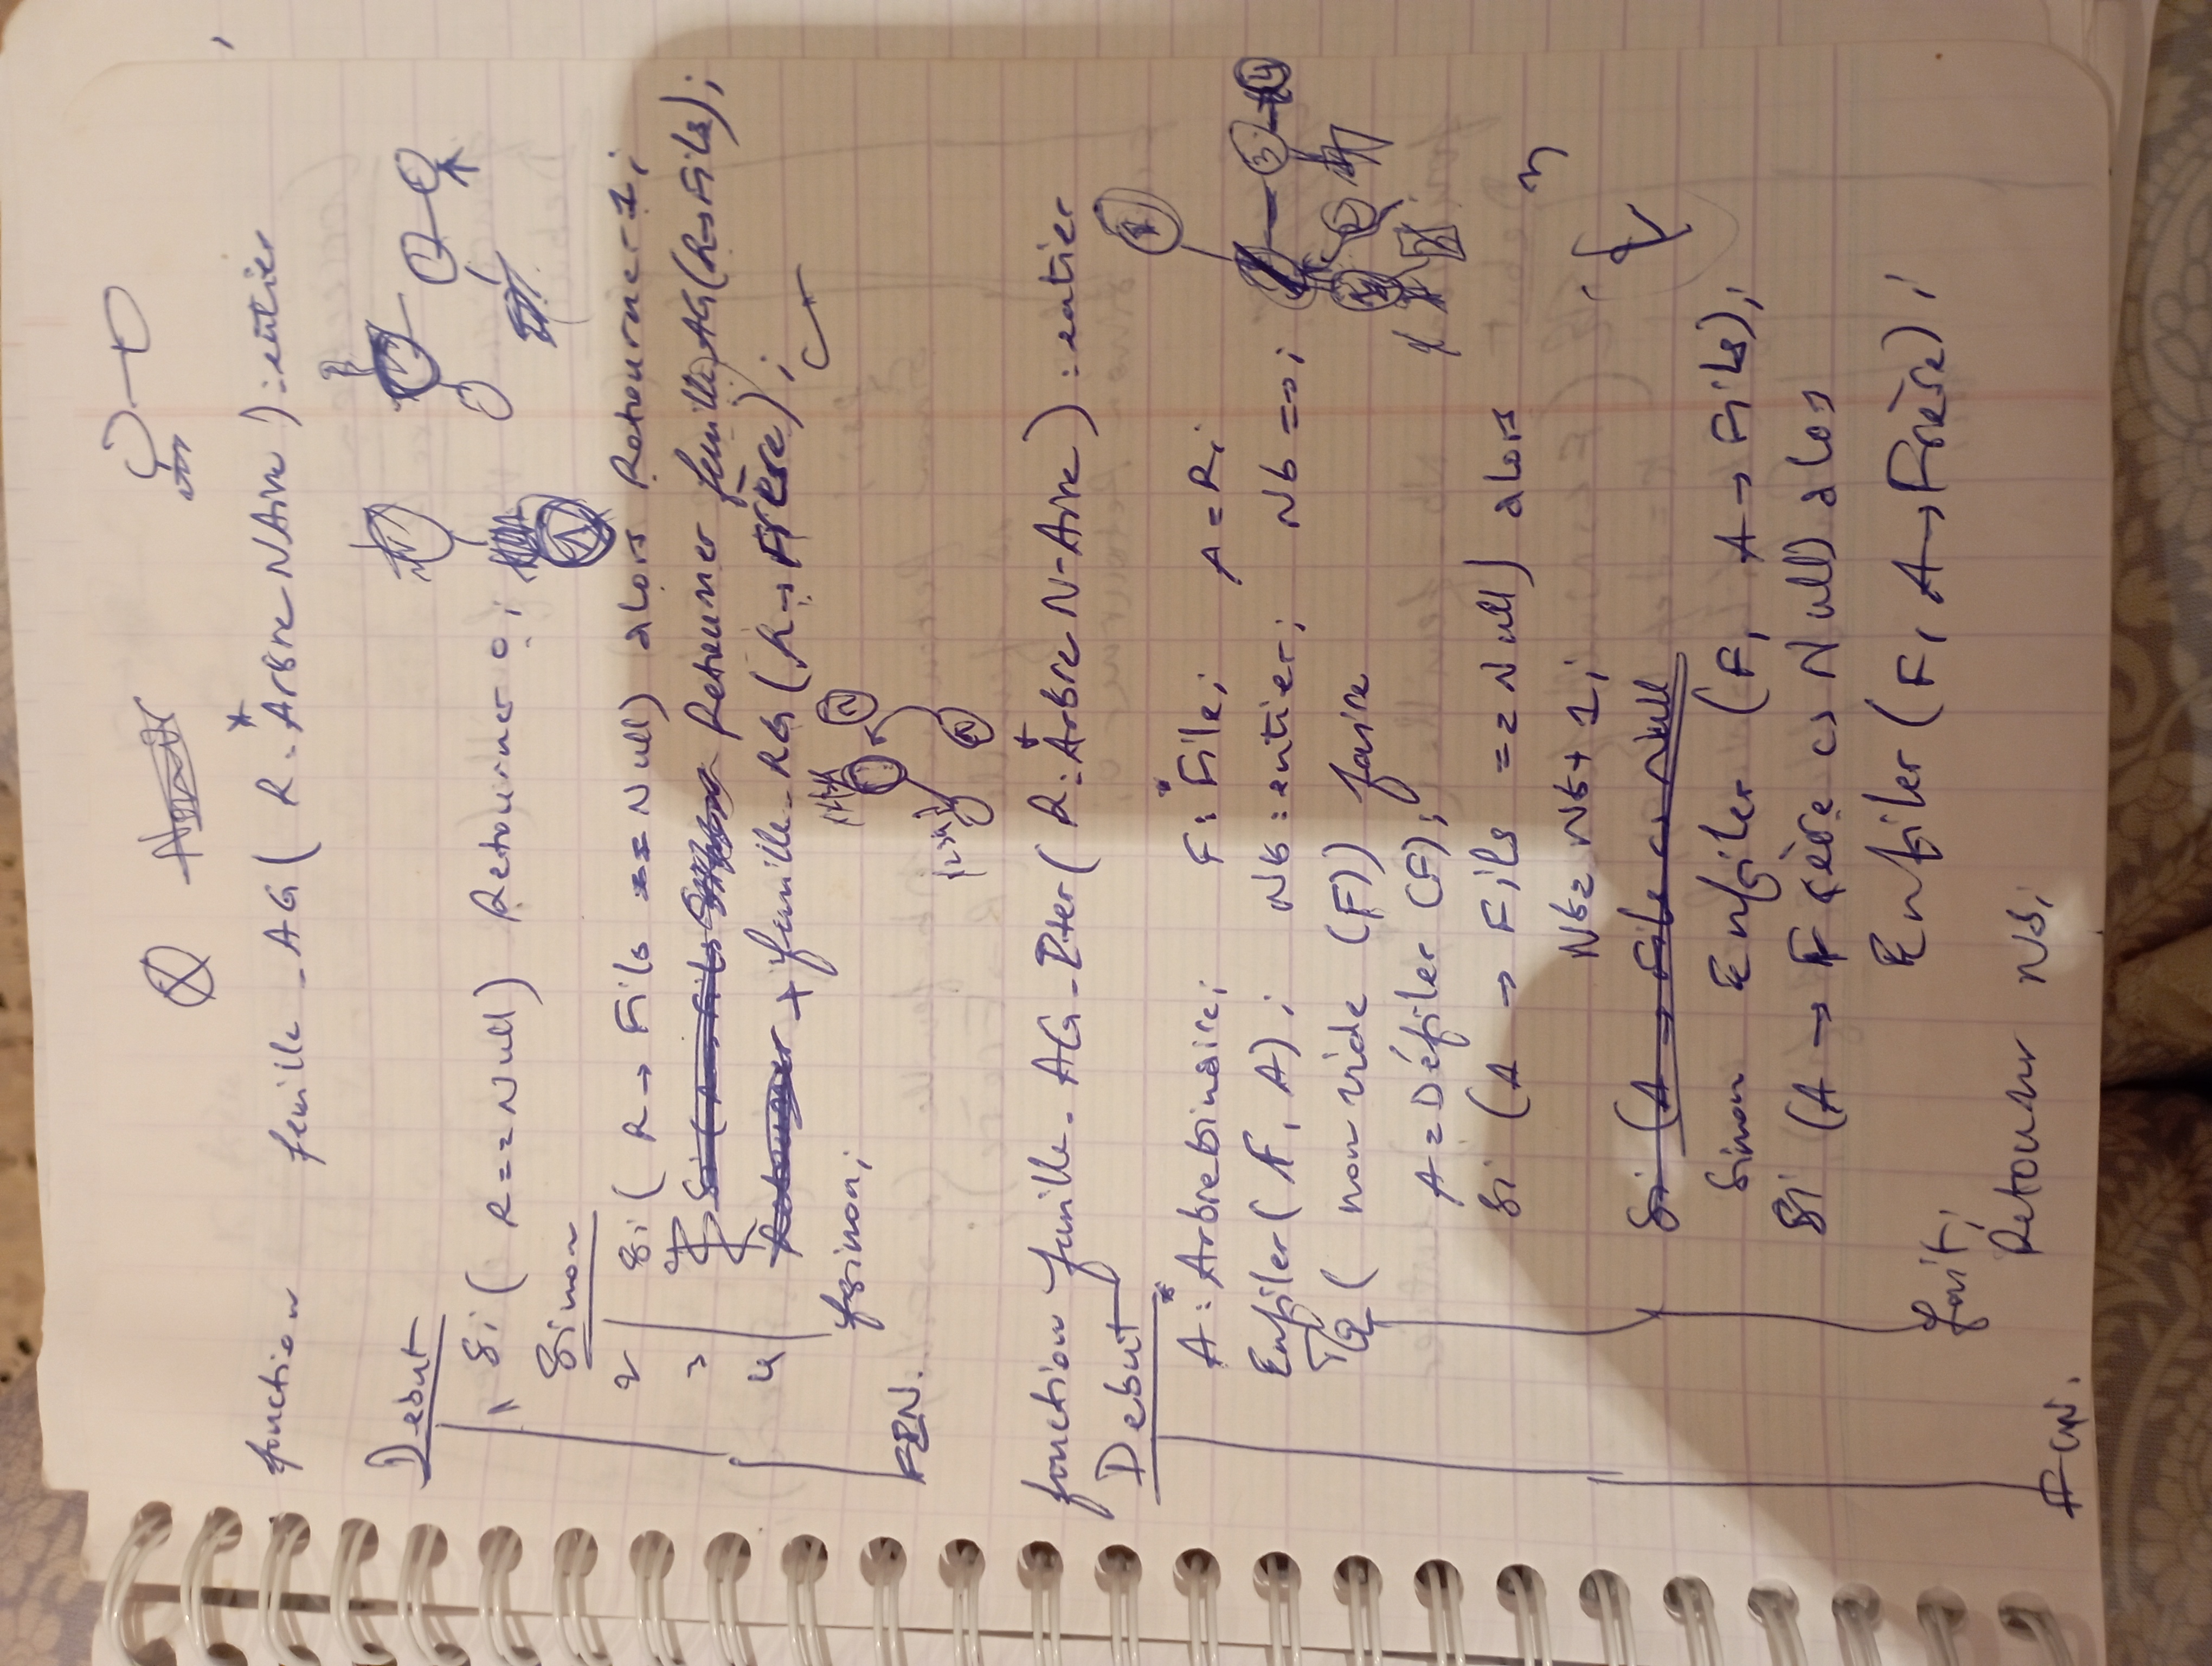 fonction feuille_AG( R: *Arbre NAire ): entier
Debut
1 Si ( R == Null) Retourner 0;
Sinon
2 Si ( R → Fils == Null) alors Retourner 1;
3 Retourner feuille_AG(R→Fils)
4 + feuille_AG (R → Frère);
fsinon;
FIN.
fonction feuille_AG_Iter( R: *Arbre N-Aire ) : entier
Debut
A: *Arbrebinaire; F: *File; A = R;
Enfiler( F, A); Nb: entier; Nb = 0;
TQ ( non vide (F)) faire
A = Défiler (F);
Si (A → Fils == Null) alors
Nb = Nb + 1;
Si (A → Fils <> Null
Sinon Enfiler (F, A → Fils);
Si (A → Frère <> Null) alos
Enfiler ( F, A → Frère) ;
fait;
Retour Nb;
Fin.